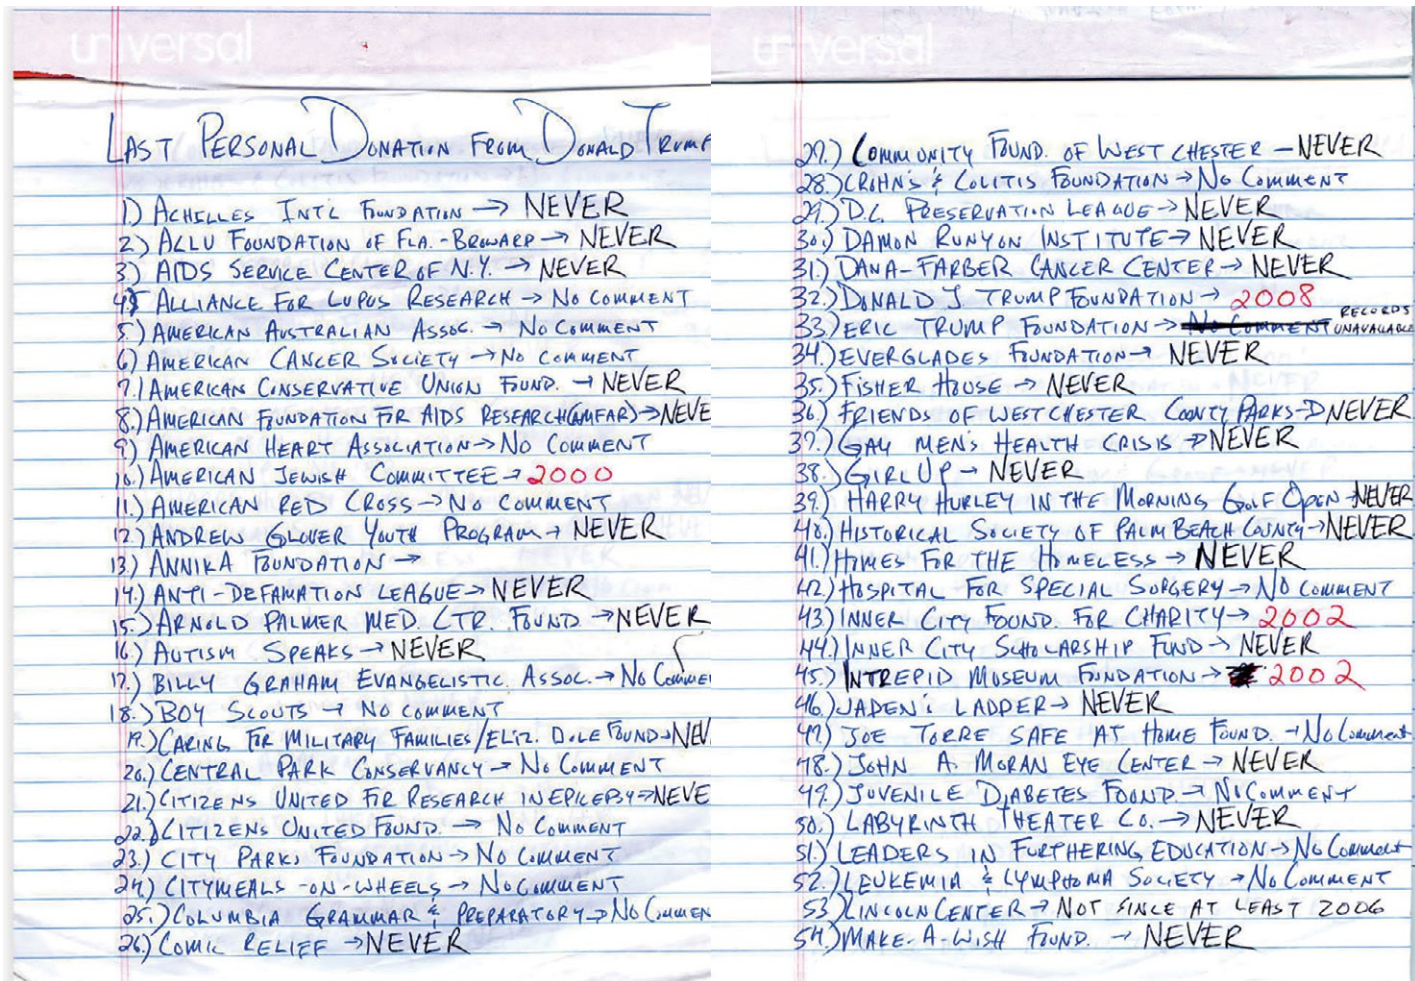 universal
LAST PERSONAL DONATION FROM DONALD TRUMP
1.) ACHILLES INT'L FOUNDATION → NEVER
2.) ALLU FOUNDATION OF FLA.-BROWARD → NEVER
3.) AIDS SERVICE CENTER OF N.Y. → NEVER
4.) ALLIANCE FOR LUPUS RESEARCH → NO COMMENT
5.) AMERICAN AUSTRALIAN ASSOC. → NO COMMENT
6.) AMERICAN CANCER SOCIETY → NO COMMENT
7.) AMERICAN CONSERVATIVE UNION FOUND. → NEVER
8.) AMERICAN FOUNDATION FOR AIDS RESEARCH (AMFAR) → NEVE
9.) AMERICAN HEART ASSOCIATION → NO COMMENT
10.) AMERICAN JEWISH COMMITTEE → 2000
11.) AMERICAN RED CROSS → NO COMMENT
12.) ANDREW GLOVER YOUTH PROGRAM → NEVER
13.) ANNIKA FOUNDATION →
14.) ANTI-DEFAMATION LEAGUE → NEVER
15.) ARNOLD PALMER MED. CTR. FOUND. → NEVER
16.) AUTISM SPEAKS → NEVER
17.) BILLY GRAHAM EVANGELISTIC ASSOC. → NO COMME
18.) BOY SCOUTS → NO COMMENT
19.) CARING FOR MILITARY FAMILIES/ELIZ. DOLE FOUND → NEV
20.) CENTRAL PARK CONSERVANCY → NO COMMENT
21.) CITIZENS UNITED FOR RESEARCH IN EPILEPSY → NEVE
22.) CITIZENS UNITED FOUND. → NO COMMENT
23.) CITY PARKS FOUNDATION → NO COMMENT
24.) CITYMEALS-ON-WHEELS → NO COMMENT
25.) COLUMBIA GRAMMAR & PREPARATORY → NO COMMEN
26.) COMIC RELIEF → NEVER
universal
27.) COMMUNITY FOUND. OF WESTCHESTER — NEVER
28.) CROHN'S & COLITIS FOUNDATION → NO COMMENT
29.) D.C. PRESERVATION LEAGUE → NEVER
30.) DAMON RUNYON INSTITUTE → NEVER
31.) DANA-FARBER CANCER CENTER → NEVER
32.) DONALD J TRUMP FOUNDATION → 2008
33.) ERIC TRUMP FOUNDATION → NO COMMENT RECORDS UNAVAILABLE
34.) EVERGLADES FOUNDATION → NEVER
35.) FISHER HOUSE → NEVER
36.) FRIENDS OF WESTCHESTER COUNTY PARKS → NEVER
37.) GAY MEN'S HEALTH CRISIS → NEVER
38.) GIRL UP → NEVER
39.) HARRY HURLEY IN THE MORNING GOLF OPEN → NEVER
40.) HISTORICAL SOCIETY OF PALM BEACH COUNTY → NEVER
41.) HOMES FOR THE HOMELESS → NEVER
42.) HOSPITAL FOR SPECIAL SURGERY → NO COMMENT
43.) INNER CITY FOUND. FOR CHARITY → 2002
44.) INNER CITY SCHOLARSHIP FUND → NEVER
45.) INTREPID MUSEUM FUNDATION → 2002
46.) JADEN'S LADDER → NEVER
47.) JOE TORRE SAFE AT HOME FOUND. → NO COMMENT
48.) JOHN A. MORAN EYE CENTER → NEVER
49.) JUVENILE DIABETES FOUND. → NO COMMENT
50.) LABYRINTH THEATER CO. → NEVER
51.) LEADERS IN FURTHERING EDUCATION → NO COMMENT
52.) LEUKEMIA & LYMPHOMA SOCIETY → NO COMMENT
53.) LINCOLN CENTER → NOT SINCE AT LEAST 2006
54.) MAKE-A-WISH FOUND. → NEVER